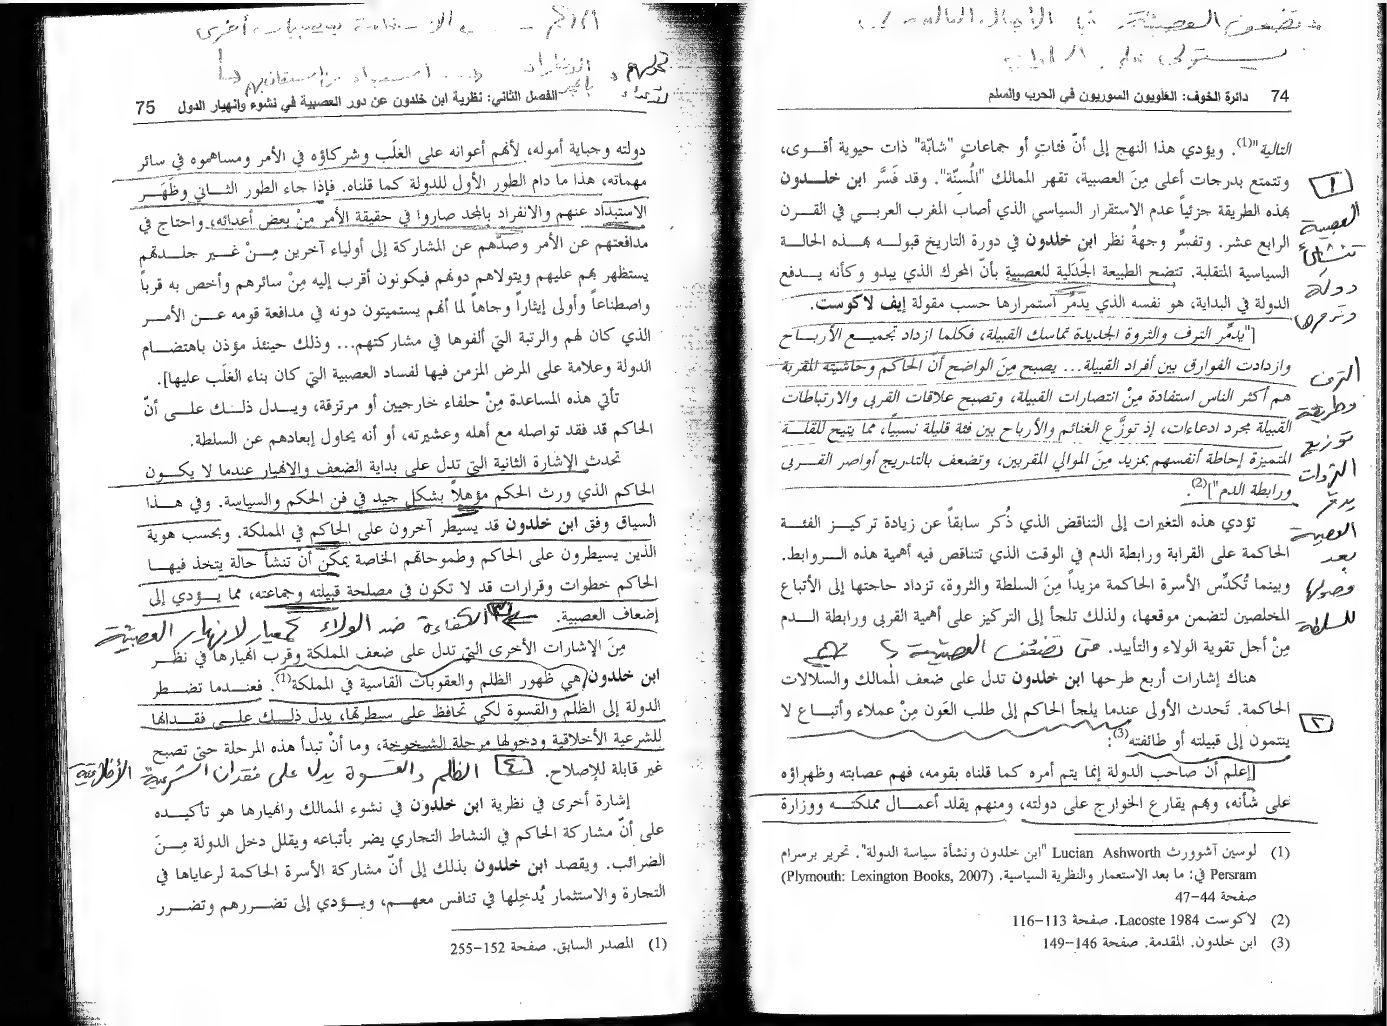 وتضعف العصبية في الأجيال التالية
يستولي على السلطة
74 دائرة الخوف: العلويون السوريون في الحرب والسلم
التالية"(1). ويؤدي هذا النهج إلى أنّ فئاتٍ أو جماعاتٍ "شابّة" ذات حيوية أقـوى،
وتتمتع بدرجات أعلى مِنَ العصبية، تقهر الممالك "المُسِنّة". وقد فَسَّر ابن خلـدون
بهذه الطريقة جزئياً عدم الاستقرار السياسي الذي أصاب المغرب العربي في القرن
الرابع عشر. وتفسِّر وجهةُ نظر ابن خلدون في دورة التاريخ قبولـه بهـذه الحالـة
السياسية المتقلبة. تتضح الطبيعة الجَدَلية للعصبية بأنّ المحرك الذي يبدو وكأنه يـدفع
الدولة في البداية، هو نفسه الذي يدمِّر استمرارها حسب مقولة إيف لاكوست.
["يدمِّر الترف والثروة الجديدة تماسك القبيلة، فكلما ازداد تجميع الأربـاح
وازدادت الفوارق بين أفراد القبيلة... يصبح مِنَ الواضح أنّ الحاكم وحاشيته المقربة
هم أكثر الناس استفادة مِنْ انتصارات القبيلة، وتصبح علاقات القربى والارتباطات
القبيلة مجرد ادعاءات، إذ توزَّع الغنائم والأرباح بين فئة قليلة نسبياً، مما يتيح للقلـة
المتميزة إحاطة أنفسهم بمزيد مِنَ الموالي المقربين، وتضعف بالتدريج أواصر القـربى
ورابطة الدم"](2).
تؤدي هذه التغيرات إلى التناقض الذي ذُكر سابقاً عن زيادة تركيـز الفئـة
الحاكمة على القرابة ورابطة الدم في الوقت الذي تتناقص فيه أهمية هذه الـروابط.
وبينما تُكدِّس الأسرة الحاكمة مزيداً مِنَ السلطة والثروة، تزداد حاجتها إلى الأتباع
المخلصين لتضمن موقعها، ولذلك تلجأ إلى التركيز على أهمية القربى ورابطة الـدم
مِنْ أجل تقوية الولاء والتأييد. متى تضعف العصبية ؟
هناك إشارات أربع طرحها ابن خلدون تدل على ضعف الممالك والسلالات
الحاكمة. تَحدث الأولى عندما يلجأ الحاكم إلى طلب العَون مِنْ عملاء وأتبـاع لا
ينتمون إلى قبيلته أو طائفته(3):
[إعلم أن صاحب الدولة إنما يتم أمره كما قلناه بقومه، فهم عصابته وظهراؤه
على شأنه، وبهم يقارع الخوارج على دولته، ومنهم يقلد أعمـال مملكتـه ووزارة
١
العصبية
تنشئ
دولة
وتدمرها
الترف
وطريقة
توزيع
الثروات
يدمّر
العصبية
بعد
وصولها
للسلطة
٢
(1) لوسين آشوورث Lucian Ashworth "ابن خلدون ونشأة سياسة الدولة". تحرير برسرام
Persram في: ما بعد الاستعمار والنظرية السياسية. (Plymouth: Lexington Books, 2007)
صفحة 44-47
(2) لاكوست Lacoste 1984. صفحة 113-116
(3) ابن خلدون. المقدمة. صفحة 146-149
الفصل الثاني: نظرية ابن خلدون عن دور العصبية في نشوء وانهيار الدول 75
دولته وجباية أمواله، لأنهم أعوانه على الغلَب وشركاؤه في الأمر ومساهموه في سائر
مهماته، هذا ما دام الطور الأول للدولة كما قلناه. فإذا جاء الطور الثـاني وظهَـر
الاستبداد عنهم والانفراد بالمجد صاروا في حقيقة الأمر مِنْ بعض أعدائه، واحتاج في
مدافعتهم عن الأمر وصدِّهم عن المشاركة إلى أولياء آخرين مِـنْ غـير جلـدتهم
يستظهر بهم عليهم ويتولاهم دونهم فيكونون أقرب إليه مِنْ سائرهم وأخص به قرباً
واصطناعاً وأولى إيثاراً وجاهاً لما أنهم يستميتون دونه في مدافعة قومه عـن الأمـر
الذي كان لهم والرتبة التي ألفوها في مشاركتهم... وذلك حينئذ مؤذن باهتضـام
الدولة وعلامة على المرض المزمن فيها لفساد العصبية التي كان بناء الغلَب عليها].
تأتي هذه المساعدة مِنْ حلفاء خارجيين أو مرتزقة، ويـدل ذلـك علـى أنّ
الحاكم قد فقد تواصله مع أهله وعشيرته، أو أنه يحاول إبعادهم عن السلطة.
تحدث الإشارة الثانية التي تدل على بداية الضعف والانهيار عندما لا يكـون
الحاكم الذي ورث الحكم مؤهلاً بشكل جيد في فن الحكم والسياسة. وفي هـذا
السياق وفق ابن خلدون قد يسيطر آخرون على الحاكم في المملكة. وبحسب هوية
الذين يسيطرون على الحاكم وطموحاتهم الخاصة يمكن أنْ تنشأ حالة يتخذ فيهـا
الحاكم خطوات وقرارات قد لا تكون في مصلحة قبيلته وجماعته، مما يـؤدي إلى
إضعاف العصبية. ٣ الكفاءة ضد الولاء كمعيار لانهيار العصبية
مِنَ الإشارات الأخرى التي تدل على ضعف المملكة وقرب انهيارها في نظـر
ابن خلدون هي ظهور الظلم والعقوبات القاسية في المملكة(1). فعنـدما تضـطر
الدولة إلى الظلم والقسوة لكي تحافظ على سيطرتها، يدل ذلـك علـى فقـدانها
للشرعية الأخلاقية ودخولها مرحلة الشيخوخة، وما أنْ تبدأ هذه المرحلة حتى تصبح
غير قابلة للإصلاح. ٤ الظلم والقسوة يدل على فقدان الشرعية الأخلاقية
إشارة أخرى في نظرية ابن خلدون في نشوء الممالك وانهيارها هو تأكيـده
على أنّ مشاركة الحاكم في النشاط التجاري يضر بأتباعه ويقلل دخل الدولة مِـنَ
الضرائب. ويقصد ابن خلدون بذلك إلى أنّ مشاركة الأسرة الحاكمة لرعاياها في
التجارة والاستثمار يُدخِلها في تنافس معهـم، ويـؤدي إلى تضـررهم وتضـرر
(1) المصدر السابق. صفحة 152-255